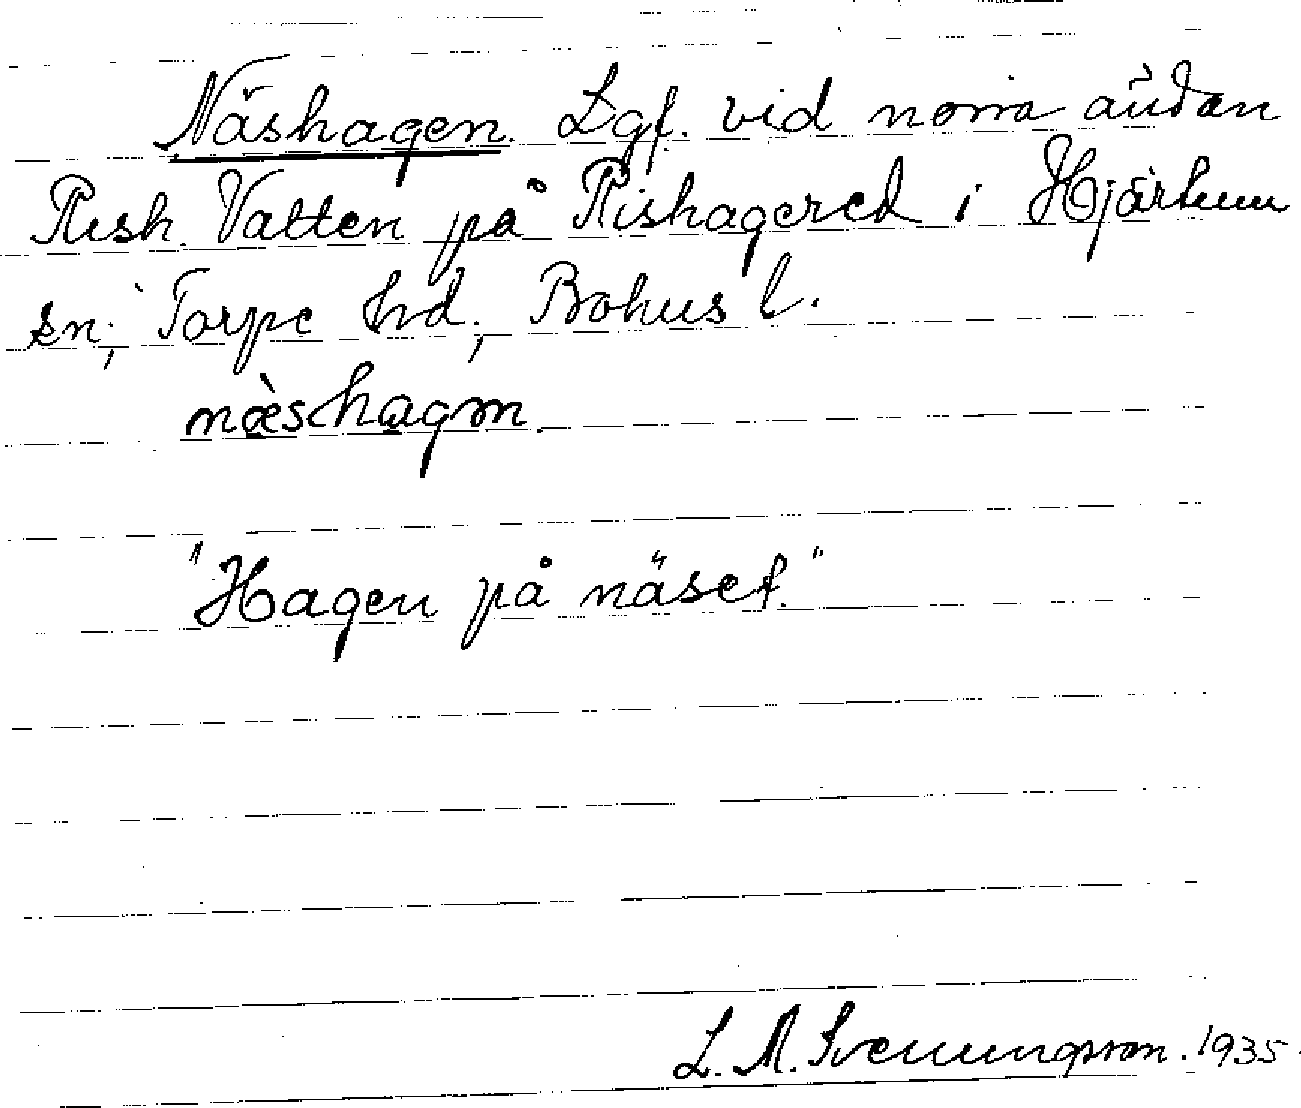 Näshagen. Lgf. vid norra ändan
Rish. Vatten på Rishagered i Hjärtum
sn; Torpe hd; Bohus l.
næ̀shagən.
"Hagen på näset."
L. M. Svenungsson. 1935.